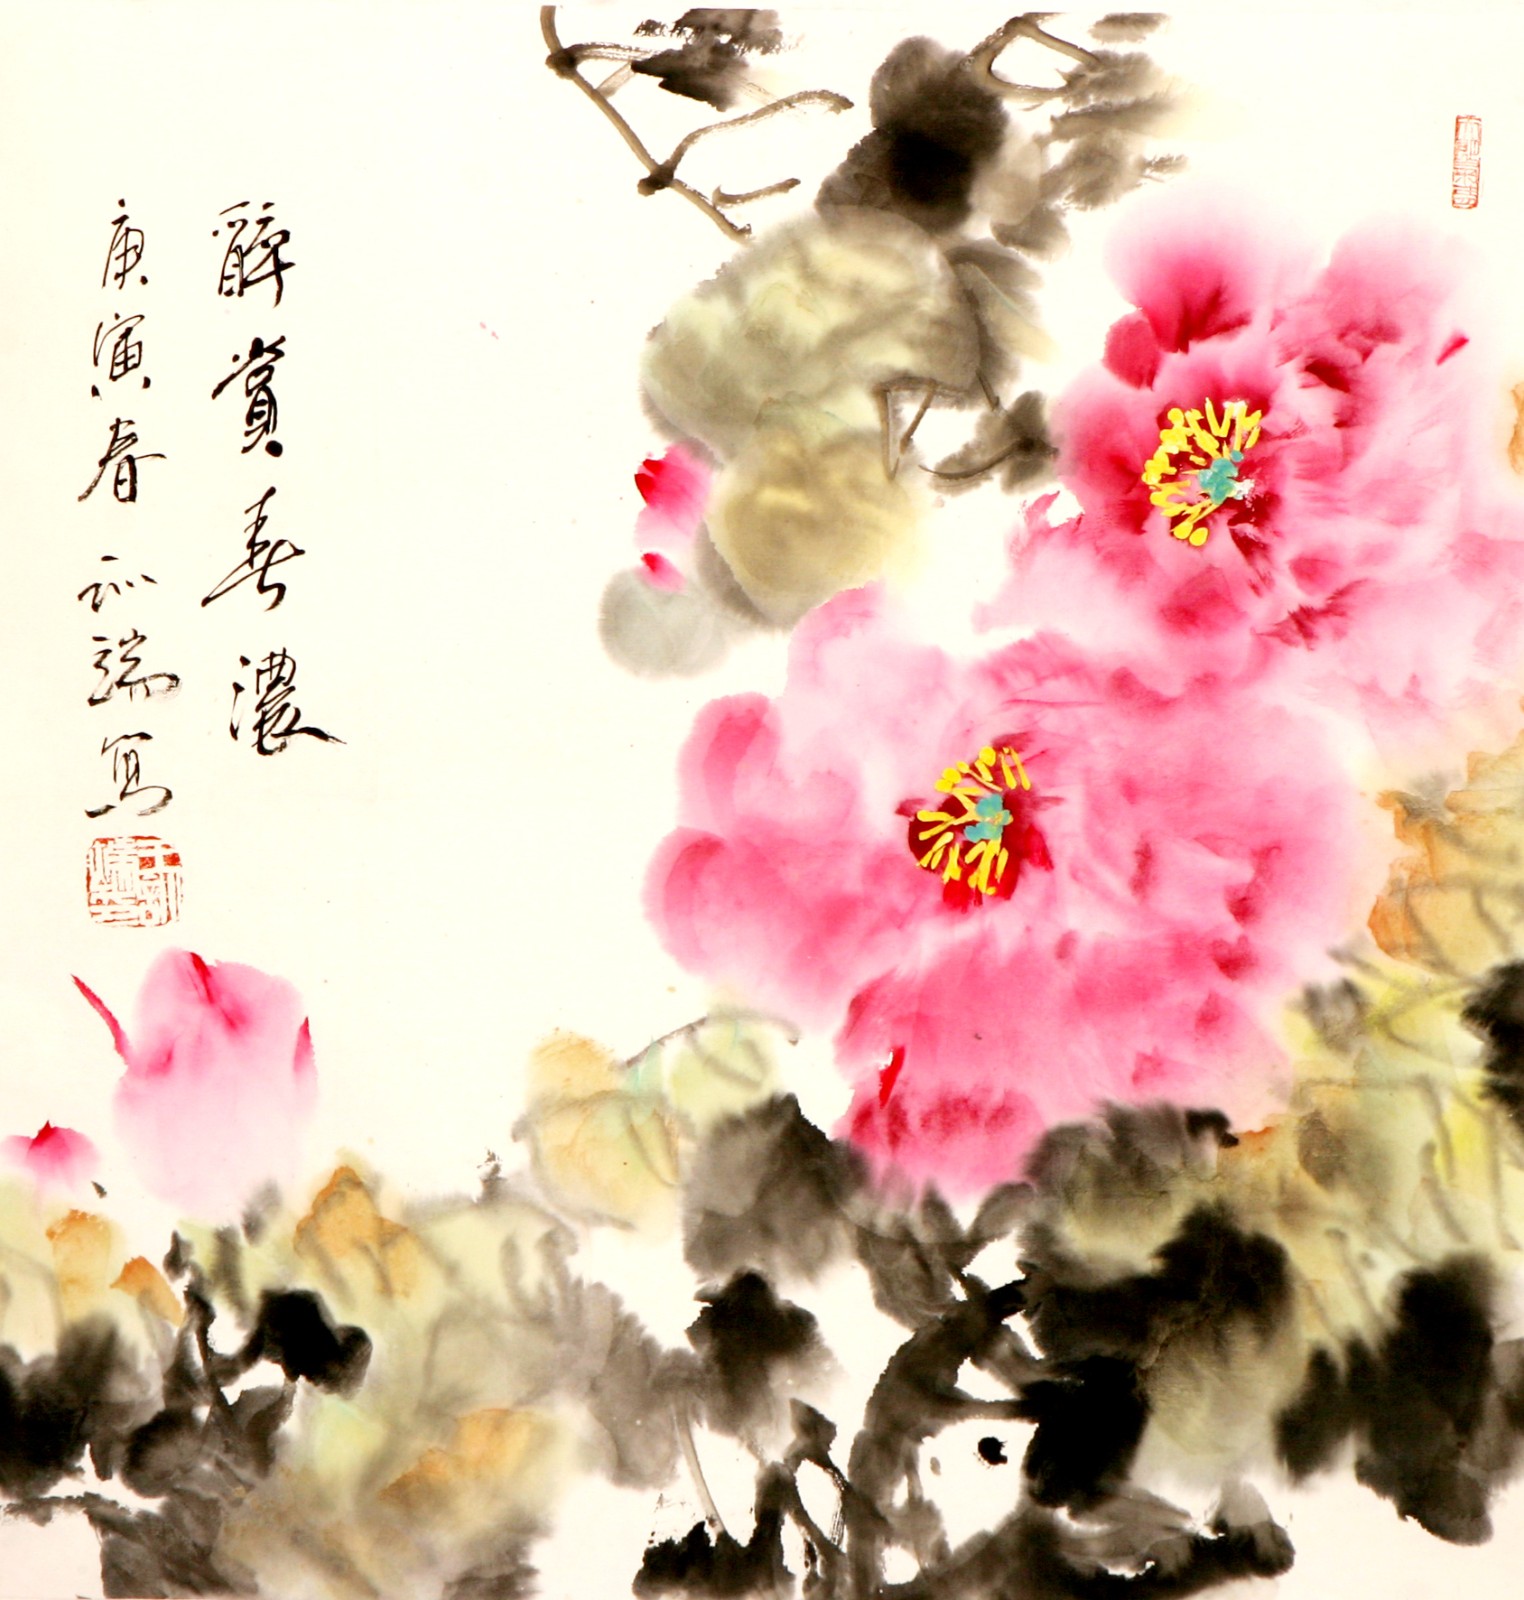 醉賞春濃
庚寅春 訓端寫